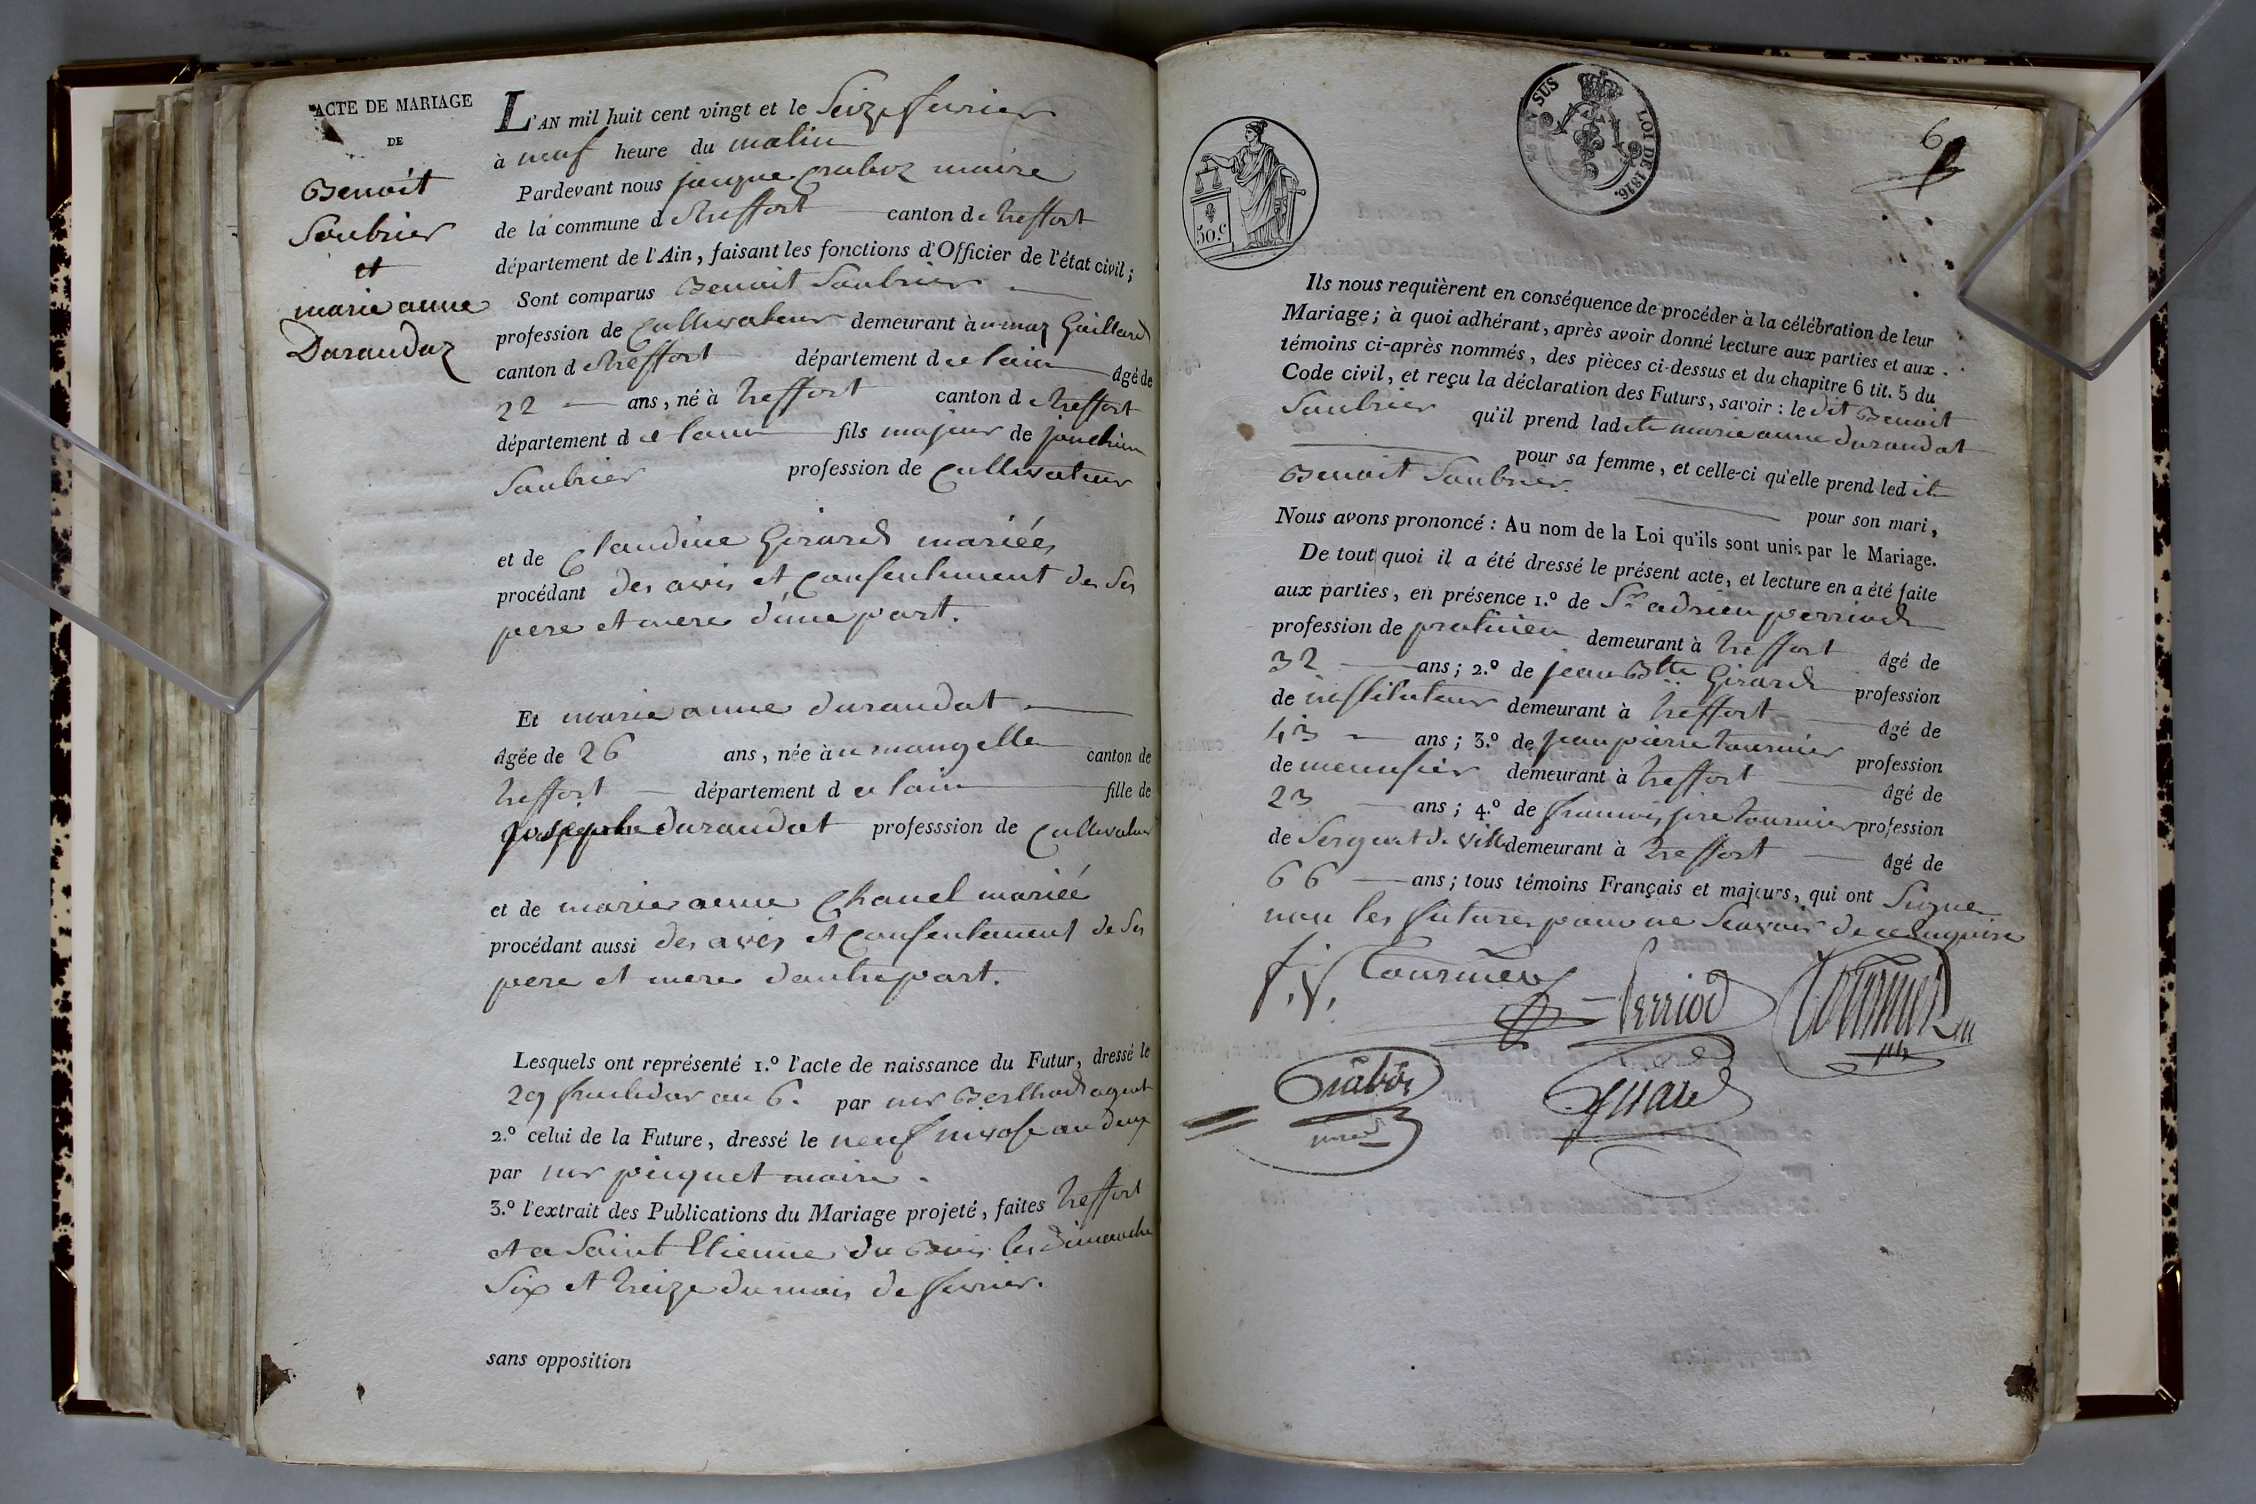 ACTE DE MARIAGE
DE
Benoit
Saubrier
et
marie anne
Durandaz
L'AN mil huit cent vingt et le Seize fevrier
à neuf heure du matin
Pardevant nous jacque maire
de la commune de treffort canton de treffort
département de l'Ain, faisant les fonctions d'Officier de l'état civil;
Sont comparus Benoit Saubrier
profession de Cultivateur demeurant à maz Guillard
canton de treffort département de lain âgé de
22 ans, né à treffort canton de treffort
département de lain fils majeur de joachim
Saubrier profession de Cultivateur
et de Claudine Girard mariées
procédant des avis et Consentement de Ses
pere et mere d'une part.
Et marie anne durandat
âgée de 26 ans, née à canton de
treffort département de lain fille de
josephe durandat professsion de Cultivateur
et de marie anne Chanel mariéé
procédant aussi des avis et Consentement de Ses
pere et mere dautre part.
Lesquels ont représenté 1.º l'acte de naissance du Futur, dressé le
29 fructidor an 6. par mr agent
2.º celui de la Future, dressé le neuf nivose an deux
par mr piequet maire.
3.º l'extrait des Publications du Mariage projeté, faites treffort
et a Saint Etienne du Bois les dimanche
Six et treize du mois de fevrier.
sans opposition
50.c
EN SUS
LOI DE 1816.
6
Ils nous requièrent en conséquence de procéder à la célébration de leur
Mariage; à quoi adhérant, après avoir donné lecture aux parties et aux
témoins ci-après nommés, des pièces ci-dessus et du chapitre 6 tit. 5 du
Code civil, et reçu la déclaration des Futurs, savoir: le dit Benoit
Saubrier qu'il prend ladite marie anne durandat
pour sa femme, et celle-ci qu'elle prend ledit
Benoit Saubrier.
pour son mari,
Nous avons prononcé: Au nom de la Loi qu'ils sont unis par le Mariage.
De tout quoi il a été dressé le présent acte, et lecture en a été faite
aux parties, en présence 1.º de Sr adrien perriod
profession de praticien demeurant à treffort âgé de
32 ans; 2.º de jean Btte Girard profession
de instituteur demeurant à treffort âgé de
43 ans; 3.º de jean pierre tournier profession
de menusier demeurant à treffort âgé de
23 ans; 4.º de francois tournier profession
de Sergent de ville demeurant à treffort âgé de
66 ans; tous témoins Français et majeurs, qui ont Signe
non les futures pour ne Scavoir de ce enquis
Tournier
Perriod
Tournier
Girard